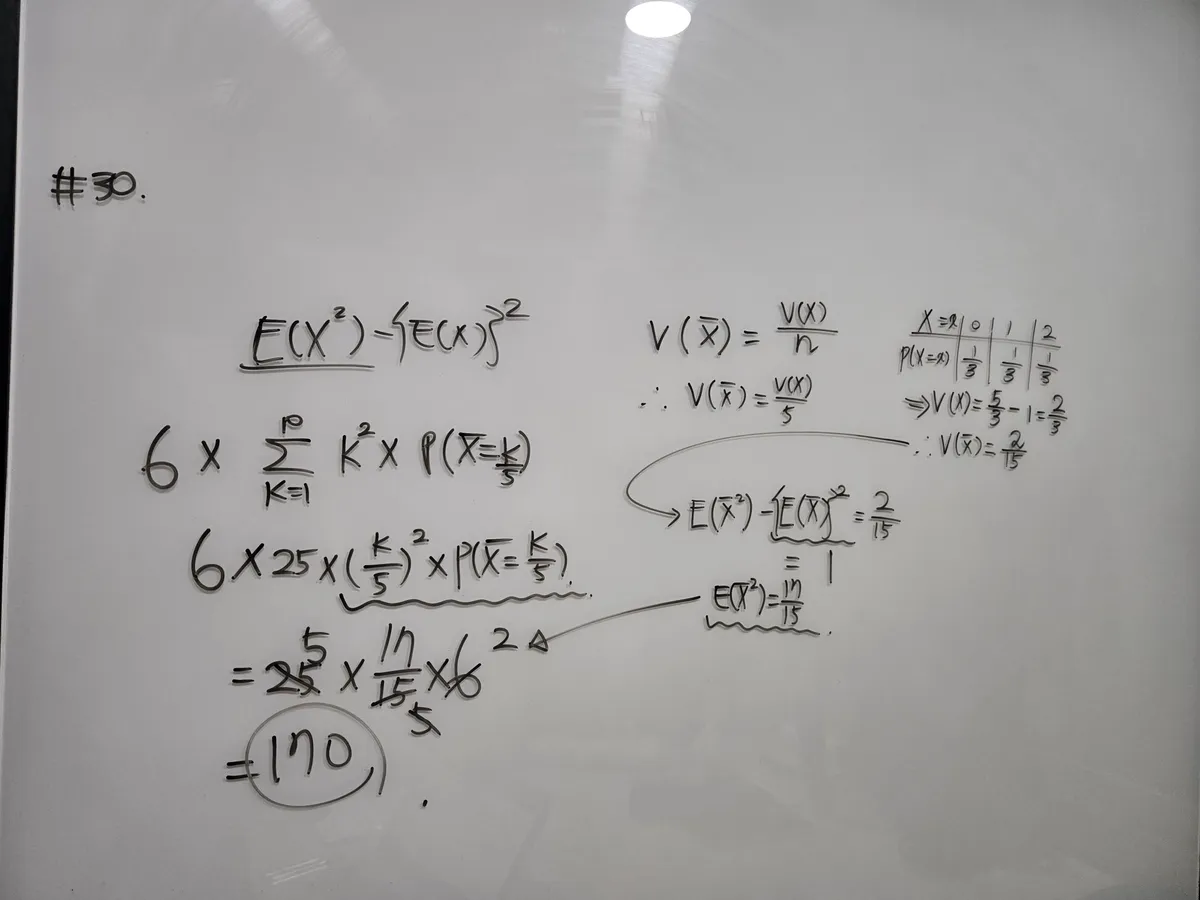 #30.
E(X²)-{E(X)}²
6 × Σ K² × P(X̄=K/5)
P
K=1
6×25×(K/5)²×P(X̄=K/5).
= 25 5 × 17/15 5 ×6 2
=170
V(X̄) = V(X)/n
∴ V(X̄) = V(X)/5
X=x | 0 | 1 | 2
P(X=x) | 1/3 | 1/3 | 1/3
⇒V(X)=5/3-1=2/3
∴V(X̄)=2/15
E(X̄²)-{E(X̄)}²=2/15
= 1
E(X̄²)=17/15.